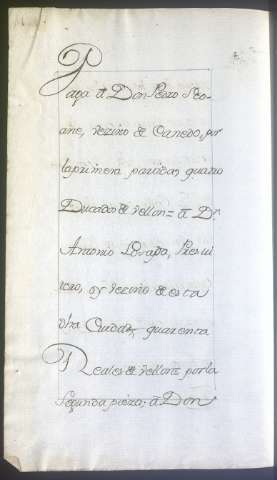 Paga â Don Pedro Seo-
ane, vezino de Canedo, por
la primera partida, quatro
Ducados de vellon = â Dn
Antonio Losada, Presvi
tero, oy vezino de esta
dha Ciudad, quarenta
Reales de vellon = por la
Segunda pieza, â Don